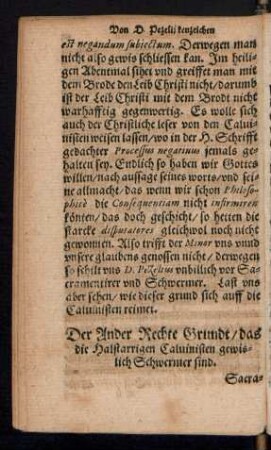 Von D. Pezelij kenzeichen
est negandum subiectum. Derwegen man
nicht also gewis schliessen kan. Im heili-
gen Abentmal sihet vnd greiffet man mit
dem Brode den Leib Christi nicht/darumb
ist der Leib Christi mit dem Brodt nicht
warhafftig gegenwertig. Es wolle sich
auch der Christliche leser von den Calui-
nisten weisen lassen/wo in der H. Schrifft
gedachter Processus negatiuus jemals ge-
halten sey. Endlich so haben wir Gottes
willen/nach aussage seines worts/vnd sei-
ne allmacht/das wenn wir schon Philoso-
phicè die Consequentiam nicht infirmiren
könten/das doch geschicht/so hetten die
starcke disputatores gleichwol noch nicht
gewonnen. Also trifft der Minor vns vnnd
vnsere glaubens genossen nicht/derwegen
so schilt vns D. Pezelius vnbillich vor Sa-
cramentirer vnd Schwermer. Last vns
aber sehen/wie dieser grund sich auff die
Caluinisten reimet.
Der Ander Rechte Grundt/das
die Halstarrigen Caluinisten gewis-
lich Schwermer sind.
Sacra-